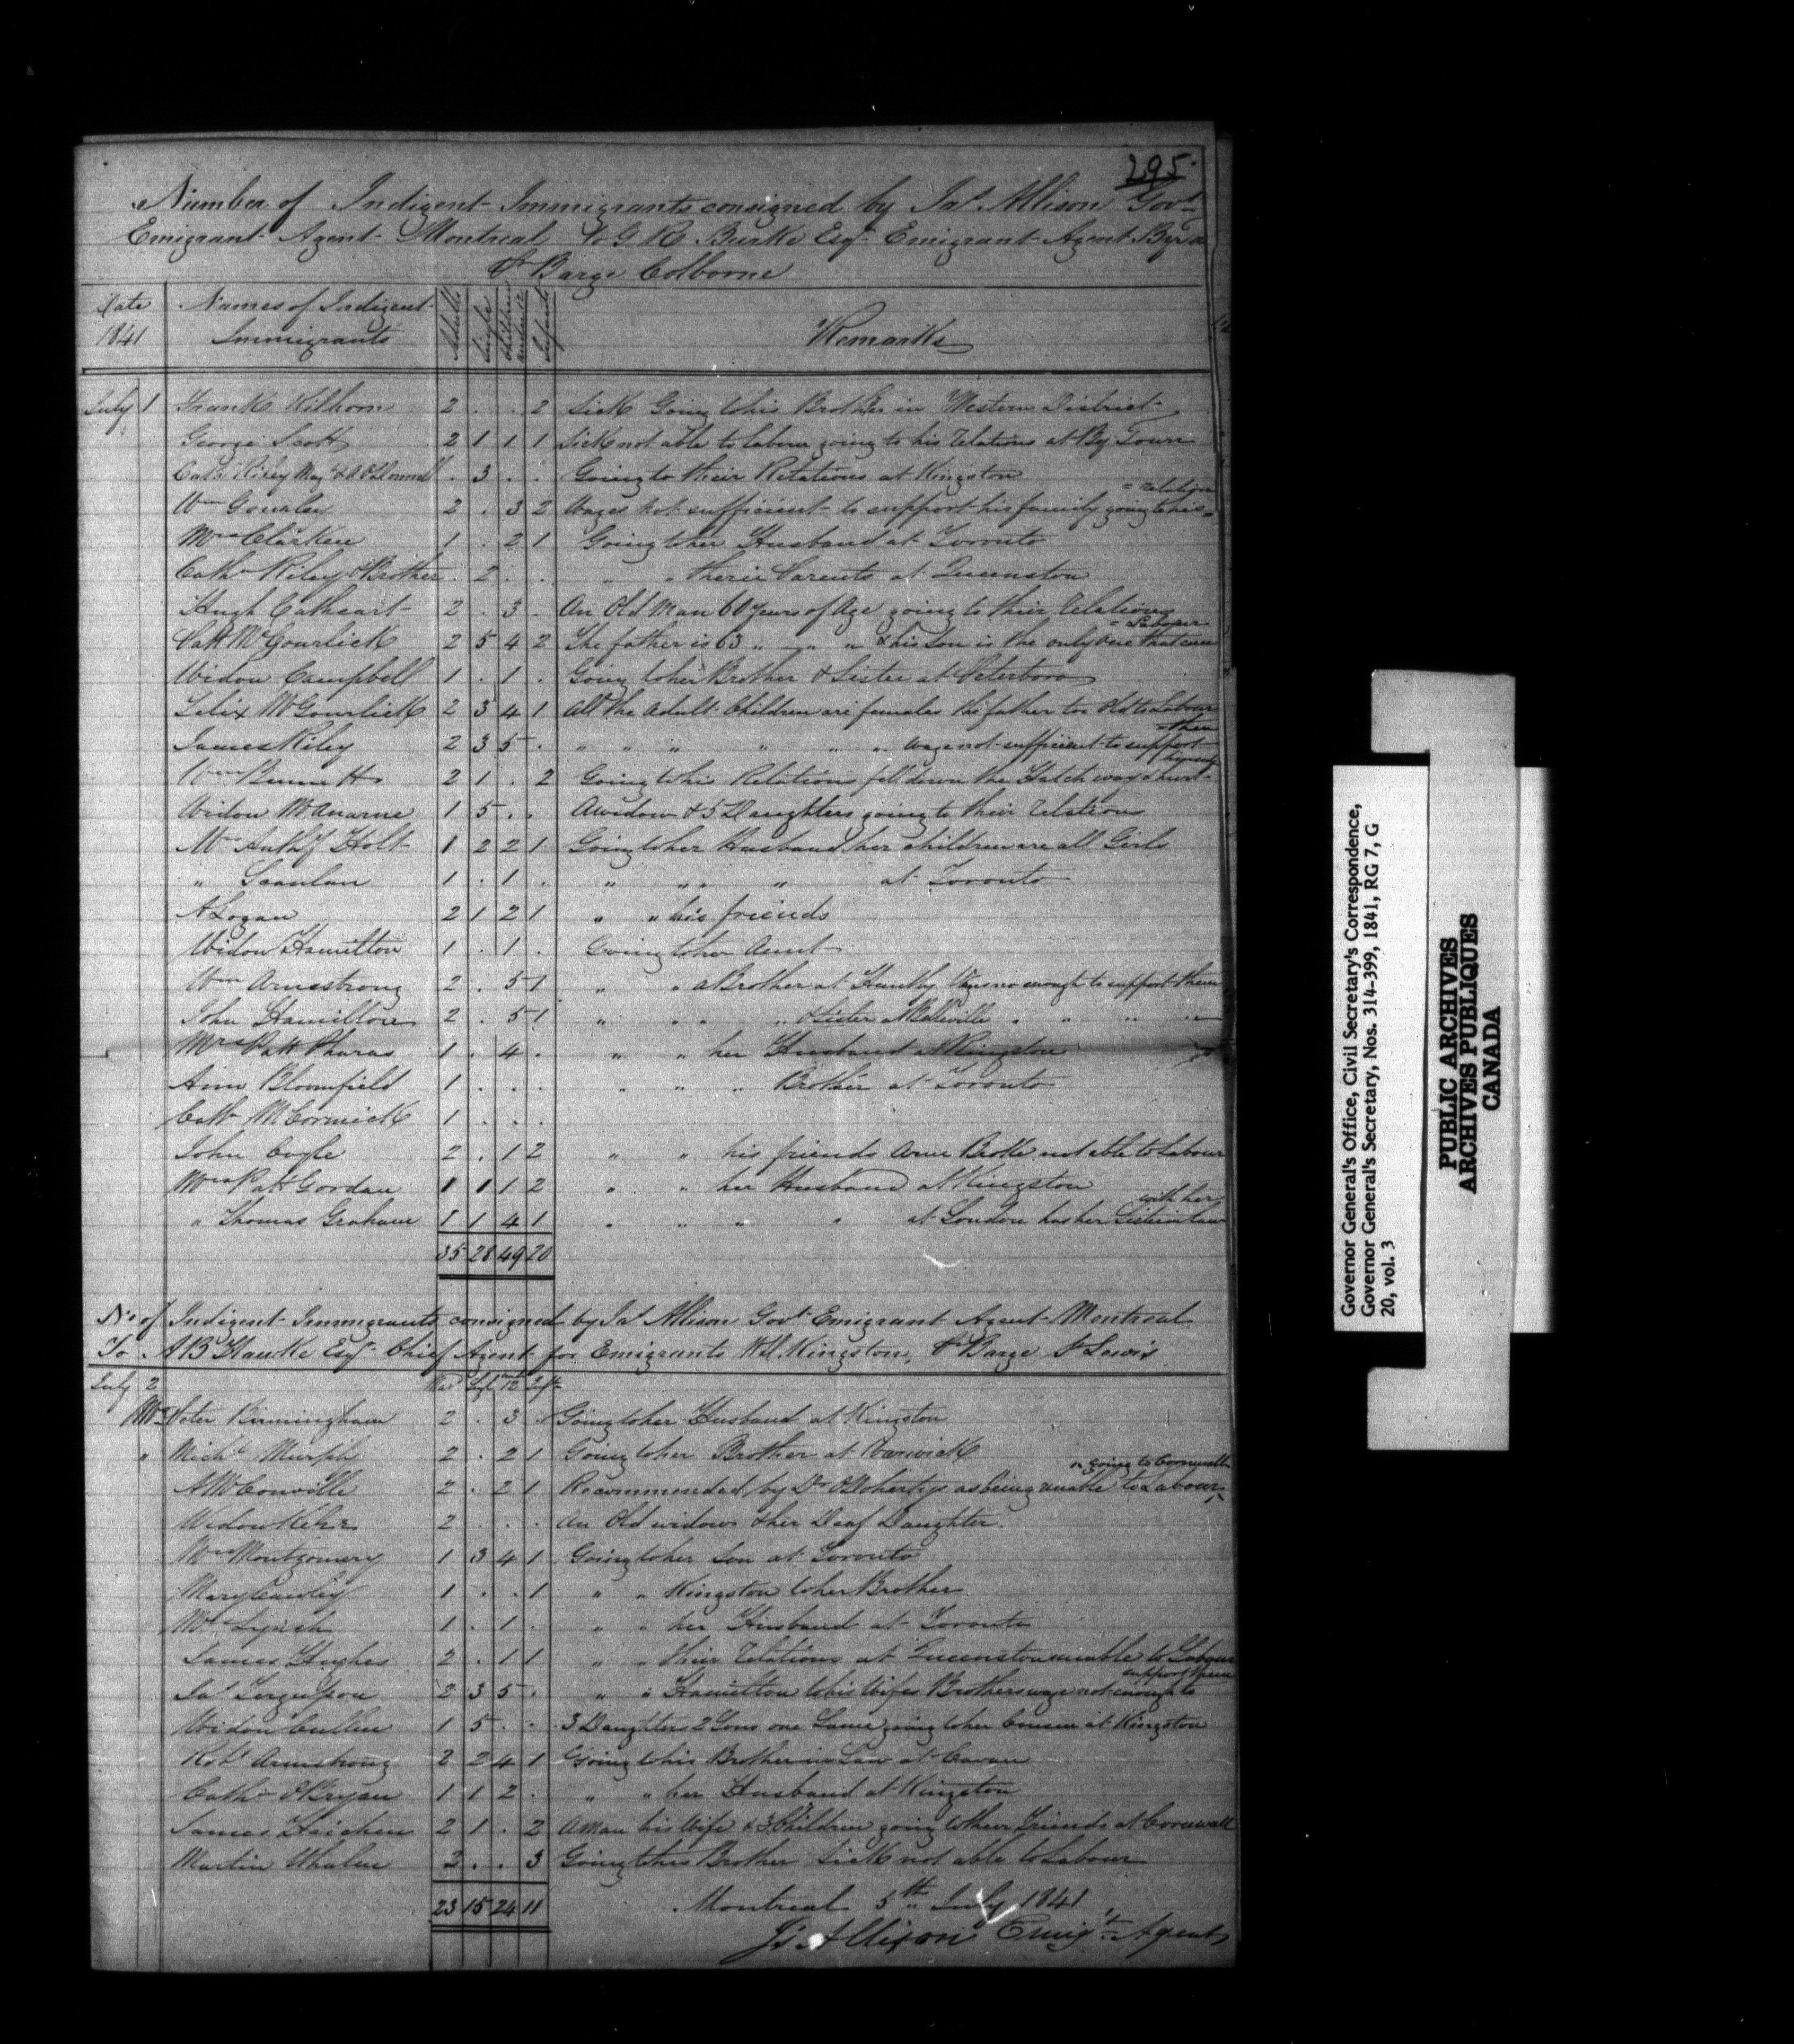 295.
Number of Indigent Immigrants consigned by Jas Allison Govt
Emigrant Agent Montreal to G R Burke Esqr Emigrant Agent
Pr Barge Colborne
Date 1841 Names of Indigent Immigrants Adults Single Children Infants Remarks
July 1 Frank Kilhorn 2 . . 2 Sick Going to his Brother in Western District
George Scott 2 1 1 1 Sick not able to labour going to his relations at By Town
Cath Riley Mary & A O'Donnell . 3 . . Going to their Relations at Kingston
Wm Gourley 2 . 3 2 Wages not sufficient to support his family going to his = relation
Mrs Clarken 1 . 2 1 Going to her Husband at Toronto
Cathn Riley & Brother . 2 . . " " their Parents at Queenston
Hugh Cathcart 2 . 3 . An Old Man 60 years of Age going to their relations
Patt McGourlick 2 5 4 2 The father is 63 " " " & his Son is the only one that can = Labour
Widow Campbell 1 . 1 . Going to her Brother & Sister at Peterboro
Felix McGourlick 2 3 4 1 All the Adult Children are females the father too Old to Labour
James Riley 2 3 5 . " " " " " " wage not sufficient to support = them
Wm Bennett 2 1 . 2 Going to his Relations fell down the Hatch way & hurt
Widow McAnarne 1 5 . . A widow & 5 Daughters going to their relation
Mrs Anthy Holt 1 2 2 1 Going to her Husband her children are all Girls
" Scanlan 1 . 1 . " " " at Toronto
A Logan 2 1 2 1 " " his friends
Widow Hamilton 1 . 1 . Going to her Aunt
Wm Armstrong 2 . 5 1 " " a Brother at Huntly wages no enough to support them
John Hamilton 2 . 5 1 " " " & Sister at Belleville " " " "
Mrs Patt 1 . 4 . " " her Husband at Kingston
Ann Bloomfield 1 . . . " " " Brother at Toronto
Cath McCormick 1 . . .
John Cogle 2 . 1 2 " " his friends Arm Broke not able to Labour
Mrs Patt Gordan 1 1 1 2 " " her Husband at Kingston
" Thomas Graham 1 1 4 1 " " " " at London has her Sister in law with her
35 28 49 20
No of Indigent Immigrants consigned by Jas Allison Govt Emigrant Agent Montreal
To A B Hawke Esqr Chief Agent for Emigrants Kingston, Pr Barge St Lewis
July 2
Mrs Peter Birmingham 2 . 3 . Going to her Husband at Kingston
" Michl Murphy 2 . 2 1 Going to her Brother at Warwick
A McConville 2 . 2 1 Recommended by Dr O'Doherty as being unable to Labour going to Cornwall
Widow 2 . . . An Old widow & her Deaf Daughter.
Mrs Montgomery 1 3 4 1 Going to her Son at Toronto
Mary 1 . . 1 " " Kingston to her Brother
Mrs Lynch 1 . 1 . " " her Husband at Toronto
James Hughes 2 . 1 1 " " their relations at Queenston unable to Labour
Jas Ferguson 2 3 5 . " " Hamilton to his Wifes Brothers wage not enough to support them
Widow Cullen 1 5 . . 3 Daughters 2 Sons one Lame going to her Cousin at Kingston
Robt Armstrong 2 2 4 1 Going to his Brother in Law at Cavan
Cathn O'Bryan 1 1 2 . " " her Husband at Kingston
James 2 1 . 2 A Man his Wife & 3 Children going to their Friends at Cornwall
Martin Whalen 2 . . 3 Going to his Brother Sick not able to Labour
23 15 24 11
Montreal 5th July 1841
Js Allison Emigt Agent
Governor General's Office, Civil Secretary's Correspondence,
Governor General's Secretary, Nos. 314-399, 1841, RG 7, G
20, vol. 3
PUBLIC ARCHIVES
ARCHIVES PUBLIQUES
CANADA